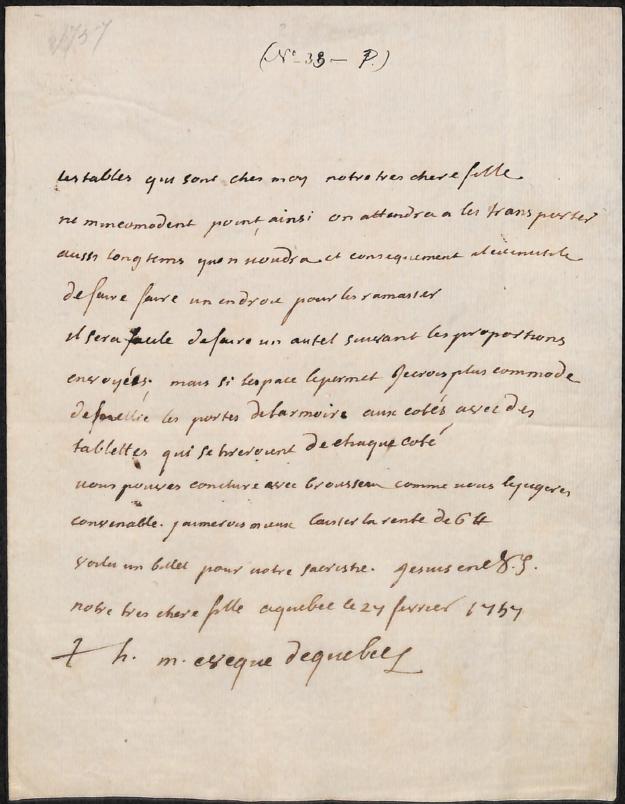 1757
(N° 33 - P.)
les tables qui sont ches moy notre tres chere fille
ne mincomodent point, ainsi on attendra a les transporter
aussi longtems quon voudra et consequement il est inutile
de faire faire un endroit pour les ramasser
il sera facile de faire un autel suivant les proportions
envoyées. mais si lespace le permet je crois plus commode
de mettre les portes de larmoire aux cotés avec des
tablettes qui se tireroient de chaque coté
vous pouves conclure avec brousseau comme vous le jugeres
convenable. jaimerois mieux laisser la rente de 6 ₶
voila un billet pour votre sacristie. je suis en J. C.
notre tres chere fille a quebec le 27 fevrier 1757
† h. m. eveque de quebec